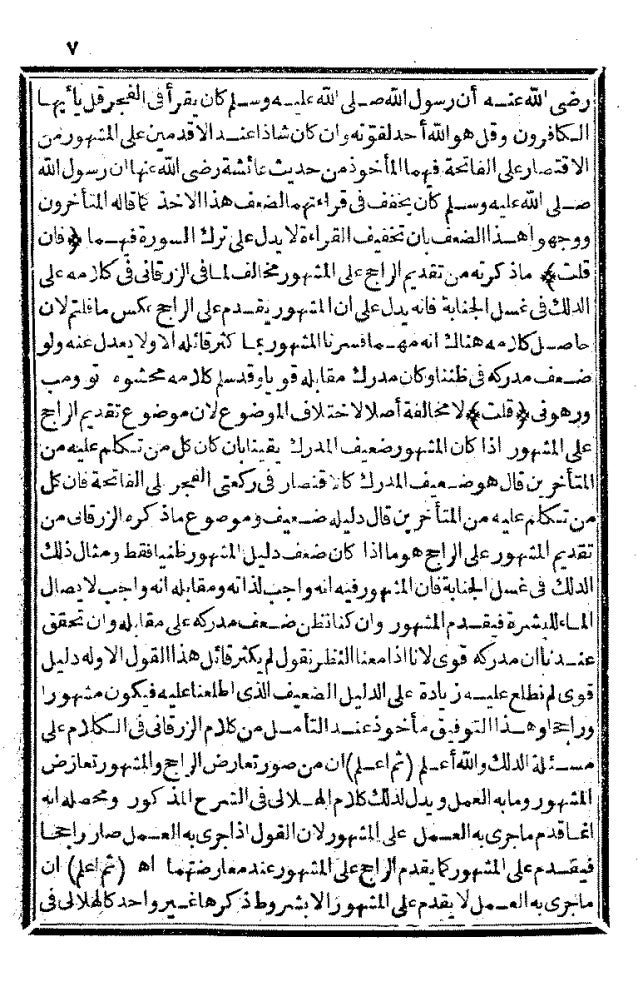 ٧
رضى الله عنه أن رسول الله صلى الله عليه وسلم كان يقرأ فى الفجر قل يا أيها
الكافرون وقل هو الله أحد لقوته وان كان شاذا عند الاقدمين على المشهور من
الاقتصار على الفاتحة فيهما المأخوذ من حديث عائشة رضى الله عنها ان رسول الله
صلى الله عليه وسلم كان يخفف فى قراءتهما لضعف هذا الاخذ كما قاله المتأخرون
ووجهوا هذا الضعف بان تخفيف القراءة لا يدل على ترك السورة فيهما ﴿فان
قلت﴾ ماذكرته من تقديم الراجح على المشهور مخالف لما فى الزرقانى فى كلامه على
الدلك فى غسل الجنابة فانه يدل على ان المشهور يقدم على الراجح عكس ما قلتم لان
حاصل كلامه هناك انه مهما فسرنا المشهور بما كثر قائله الا ولا يعدل عنه ولو
ضعف مدركه فى ظننا وكان مدرك مقابله قويا وقد سلم كلامه محشوه تو ومب
ورهونى ﴿قلت﴾ لا مخالفة أصلا لاختلاف الموضوع لان موضوع تقديم الراجح
على المشهور اذا كان المشهور ضعيف المدرك يقينا بان كان كل من تكلم عليه من
المتأخرين قال هو ضعيف المدرك كالاقتصار فى ركعتى الفجر على الفاتحة فان كل
من تكلم عليه من المتأخرين قال دليله ضعيف وموضوع ماذكره الزرقانى من
تقديم المشهور على الراجح هو ما اذا كان ضعف دليل المشهور ظنيا فقط ومثال ذلك
الدلك فى غسل الجنابة فان المشهور فيه انه واجب لذاته ومقابله انه واجب لايصال
الماء للبشرة فيقدم المشهور وان كنا نظن ضعف مدركه على مقابله وان تحقق
عندنا ان مدركه قوى لانا اذا معنا النظر نقول لم يكثر قائل هذا القول الا وله دليل
قوى لم نطلع عليه زيادة على الدليل الضعيف الذى اطلعنا عليه فيكون مشهورا
وراجحا وهذا التوفيق مأخوذ عند التأمل من كلام الزرقانى فى الكلام على
مسئلة الدلك والله أعلم (ثم اعلم) ان من صور تعارض الراجح والمشهور تعارض
المشهور وما به العمل ويدل لذلك كلام الهلالى فى الشرح المذكور ومحصله انه
انما قدم ماجرى به العمل على المشهور لان القول اذا جرى به العمل صار راجحا
فيقدم على المشهور كما يقدم الراجح على المشهور عند معارضتهما اه (ثم اعلم) ان
ماجرى به العمل لا يقدم على المشهور الا بشروط ذكرها غير واحد كالهلالى فى